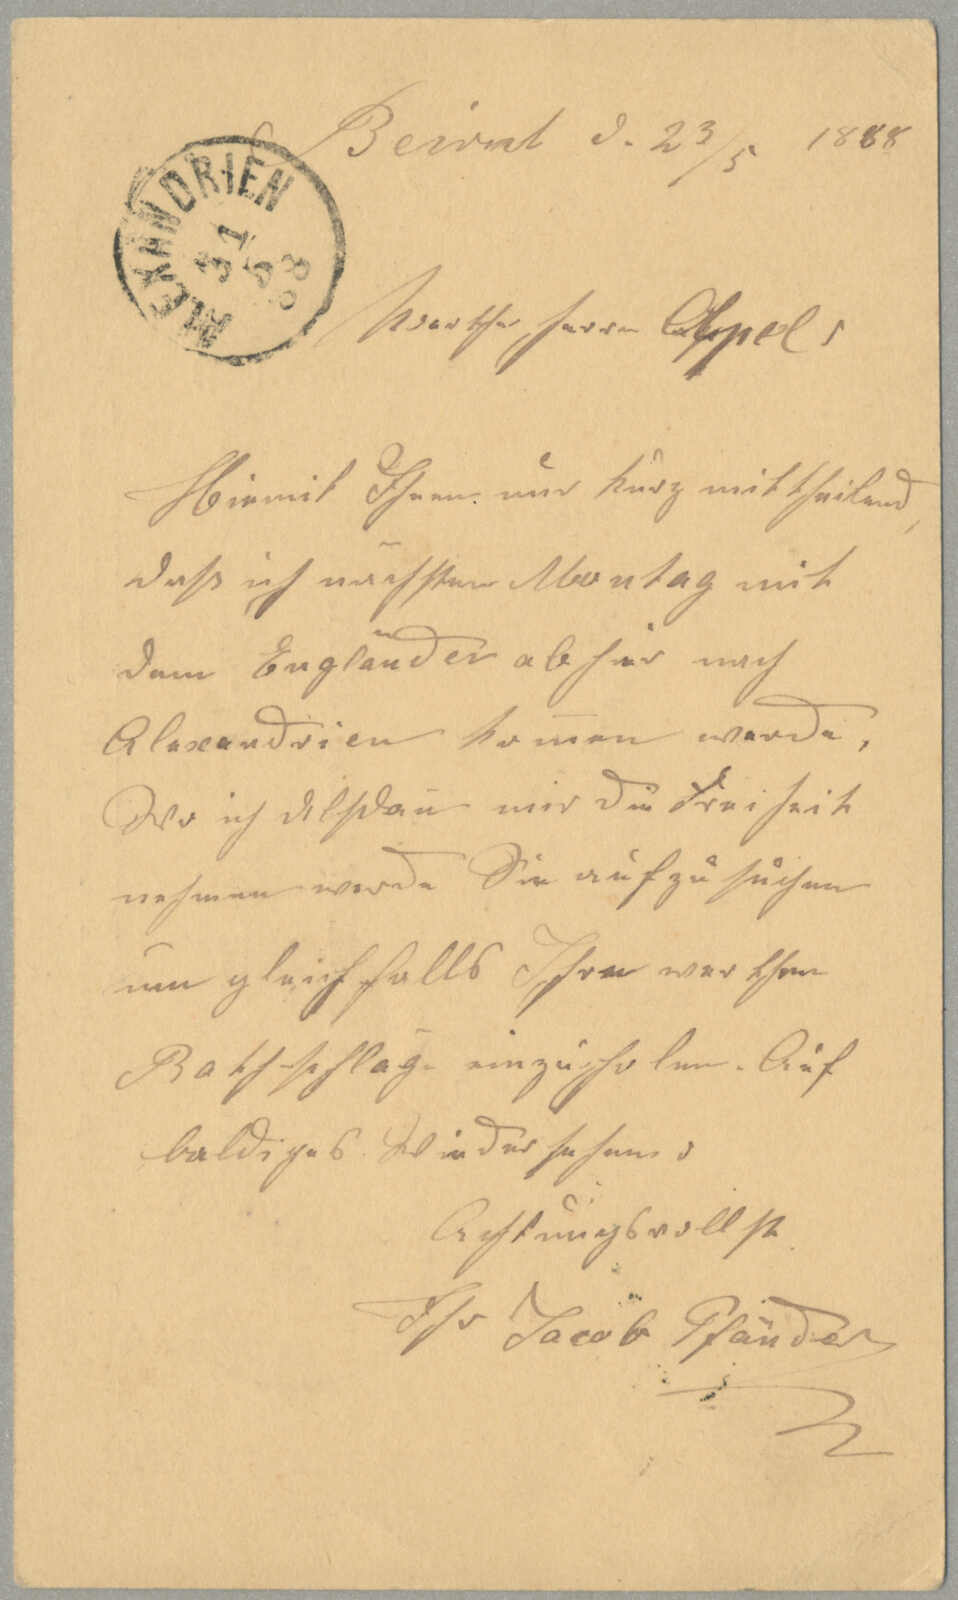 Beirut d. 23/5 1888
ALEXANDRIEN
31
5
88
Werther Herrn Appel!
Hiemit Ihnen nur kurz mittheilend,
daß ich nächsten Montag mit
dem Engländer ab hier nach
Alexandrien kom̅en werde,
Wo ich alsdan̅ mir die Freiheit
nehmen werde Sie aufzusuchen
um gleichfalls Ihren werthen
Rathschlag einzuholen. Auf
baldiges Wiedersehen!
Achtungsvollst
Ihr Jacob Pfänder